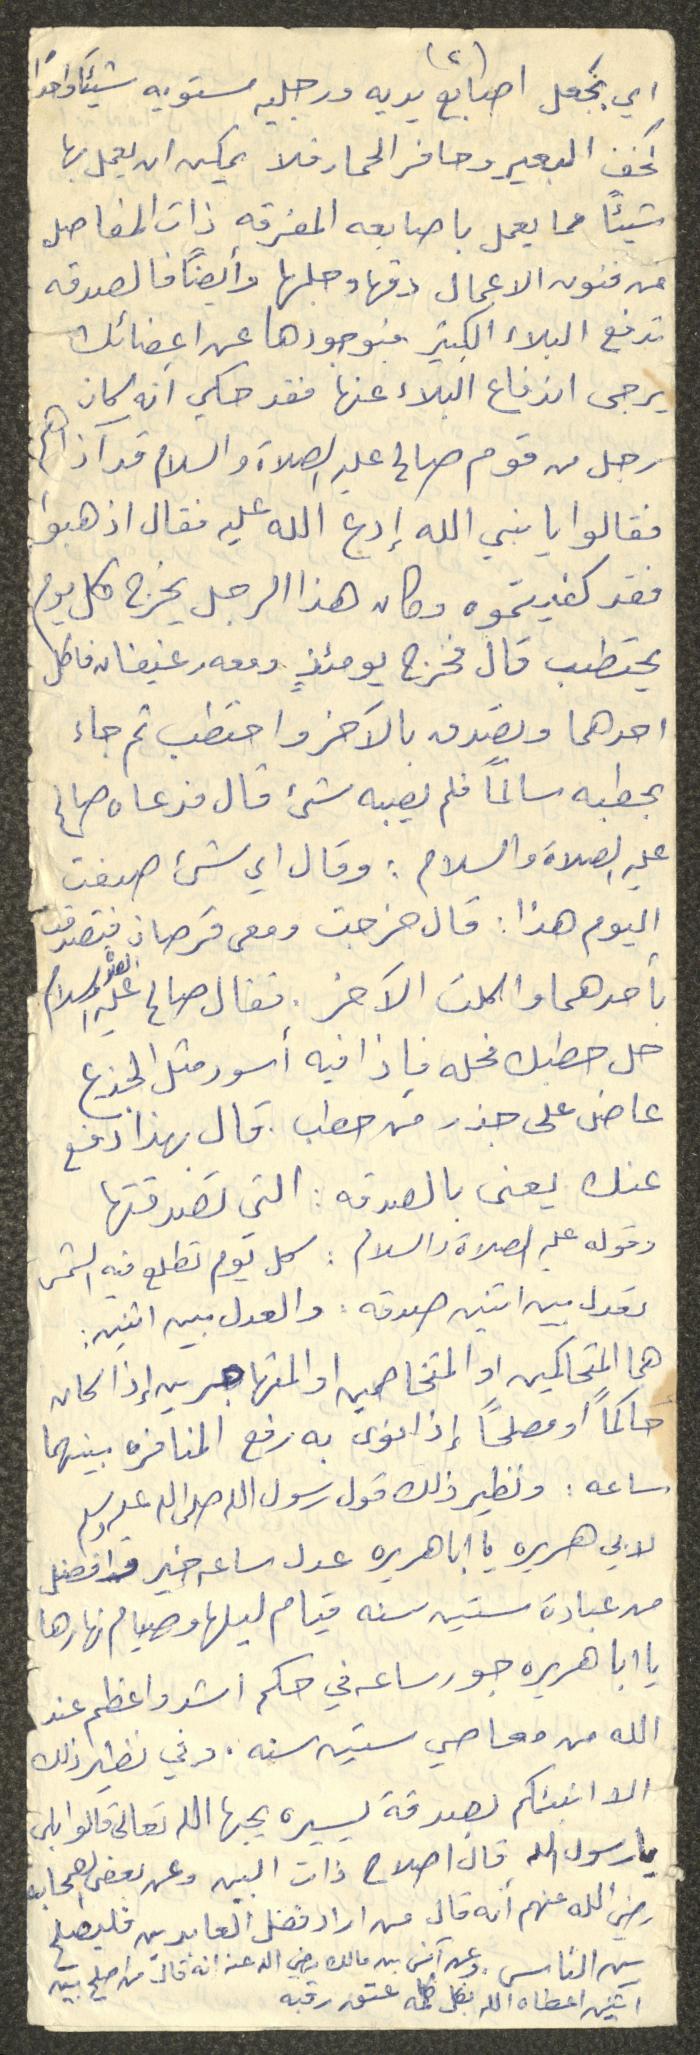 (٢)
اي نجعل اصابع يديه ورجليه مستويه شيئًا واحدًا
كخف البعير وحافر الحمار فلا يمكن ان يعمل بها
شيئًا مما يعمل باصابعه المفرقه ذات المفاصل
من فنون الاعمال دقها وجلها وأيضًا فالصدقه
تدفع البلاء الكثير فبوجودها عن اعضائك
يرجى اندفاع البلاء عنها فقد حكي انه كان
رجل من قوم صالح عليه الصلاة والسلام قد آذاهم
فقالوا يا نبي الله إدع الله عليه فقال اذهبوا
فقد كفيتموه وكان هذا الرجل يخرج كل يوم
يحتطب قال فخرج يومئذٍ ومعه رغيفان فاكل
احدهما وتصدق بالآخر واحتطب ثم جاء
بحطبه سالمًا فلم يصبه شئ قال فدعاه صالح
عليه الصلاة والسلام : وقال اي شئ صنعت
اليوم هذا : قال خرجت ومعي قرصان فتصدقت
بأحدهما واكلت الآخر . فقال صالح عليه الصلاة والسلام
حل حطبك فحله فإذا فيه أسود مثل الجذع
عاض على جذر من حطب . قال بهذا دفع
عنك يعني بالصدقه : التي تصدقتها
وقوله عليه الصلاة والسلام : كل يوم تطلع فيه الشمس
تعدل بين اثنين صدقه : والعدل بين اثنين :
هما المتحاكمين او المتخاصمين او المتهاجرين إذا كان
حاكمًا أو مصلحًا إذا نوى به رفع المنافره بينهما
ساعه : ونظير ذلك قول رسول الله صلى الله عليه وسلم
لابي هريره يا ابا هريره عدل ساعه خير وافضل
من عبادة ستين سنه قيام ليلها وصيام نهارها
يا ابا هريره جور ساعه في حكم اشد واعظم عند
الله من معاصي ستين سنه . وفي نظير ذلك
الا انبئكم بصدقة يسيره يحبها الله تعالى قالوا بلى
يا رسول الله قال اصلاح ذات البين وعن بعض الصحابه
رضي الله عنهم أنه قال من اراد فضل العابدين فليصلح
بين الناس . وعن أنس بن مالك رضي الله عنه انه قال من اصلح بين
اثنين اعطاه الله بكل كلمه عتق رقبه